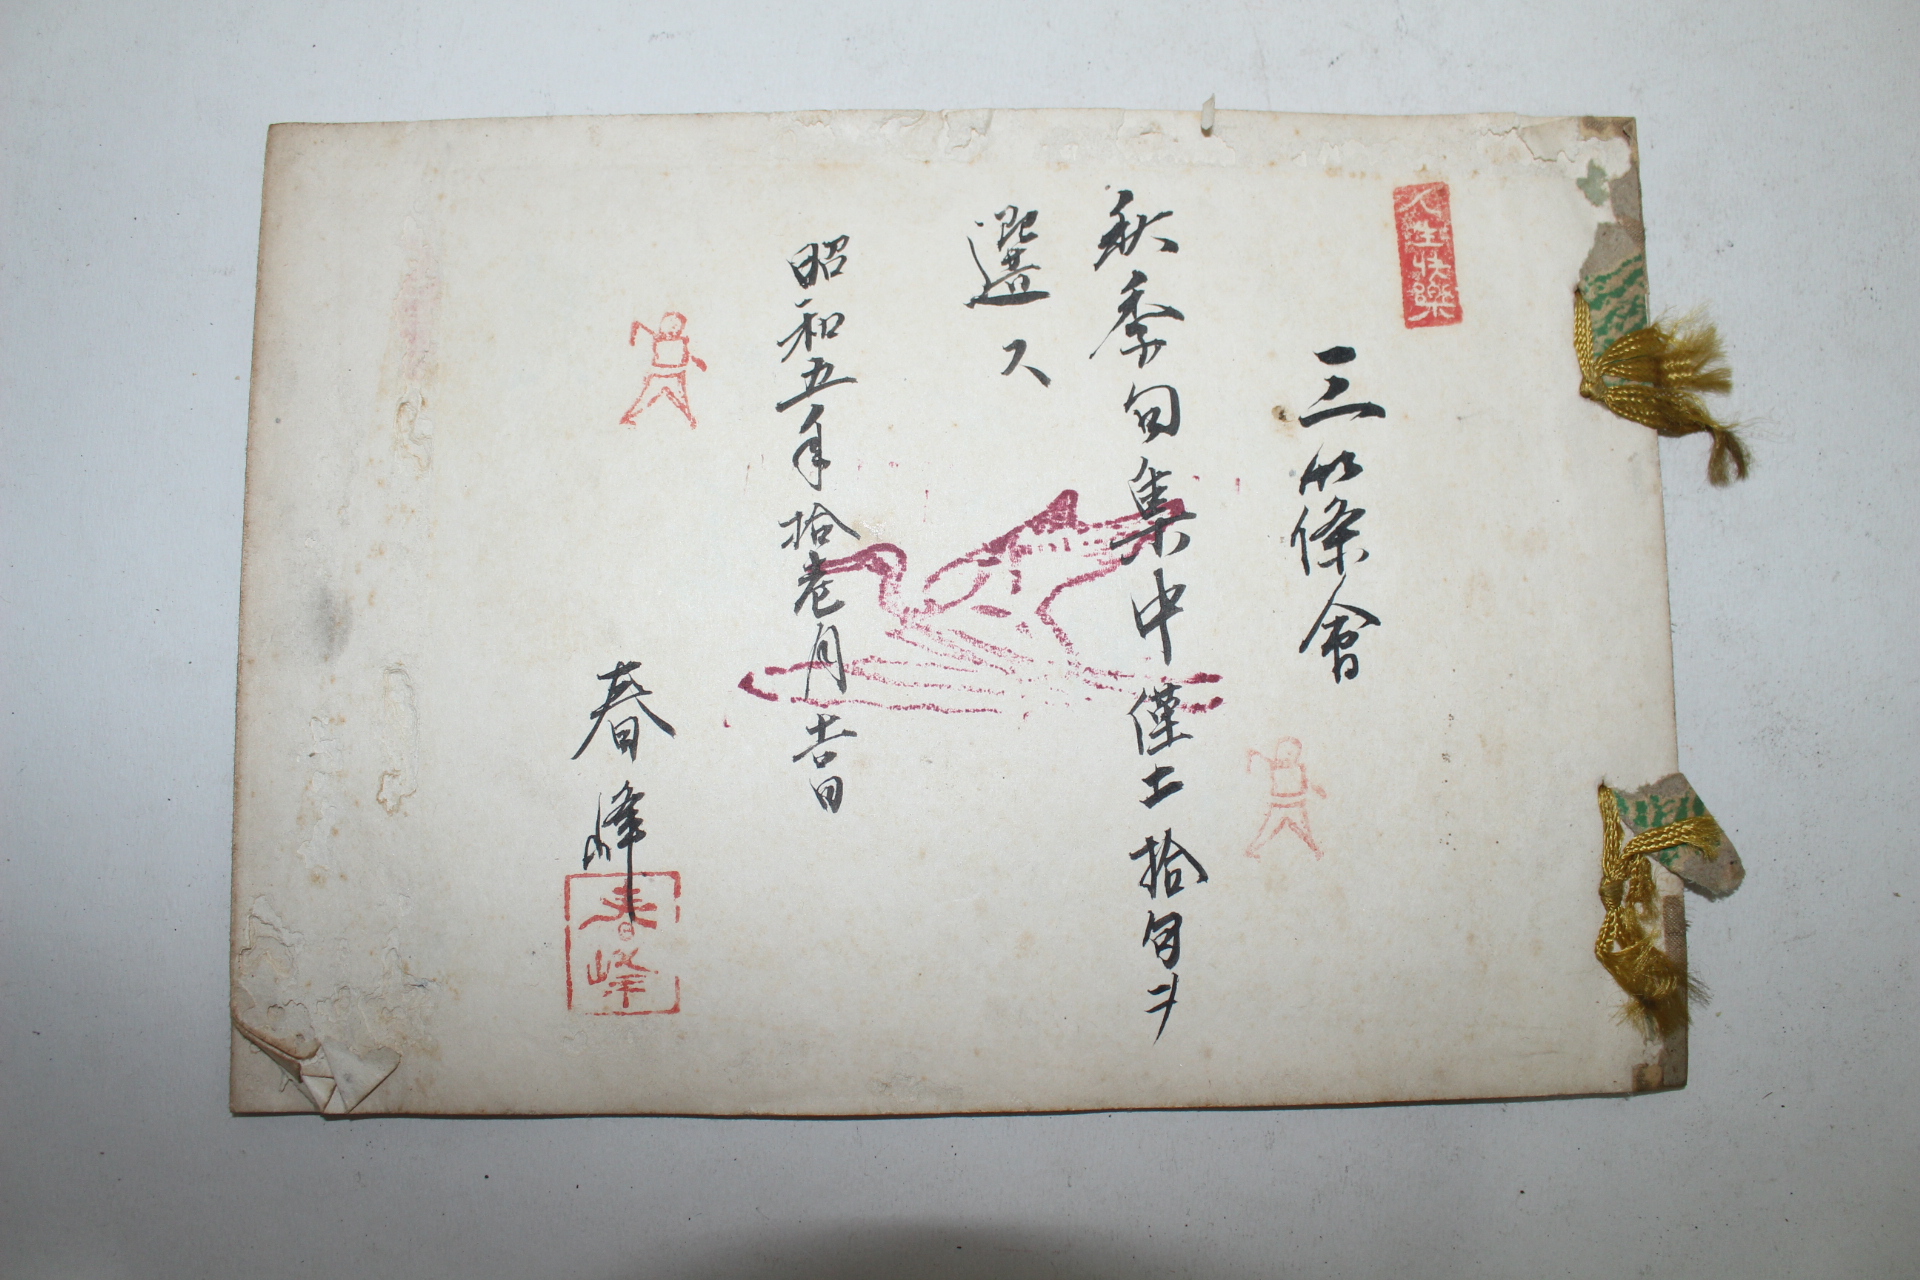 人生快樂
三篠會
秋季句集中僅拾句ヲ
選ス
昭和五年拾壱月吉日
春峰
春峰